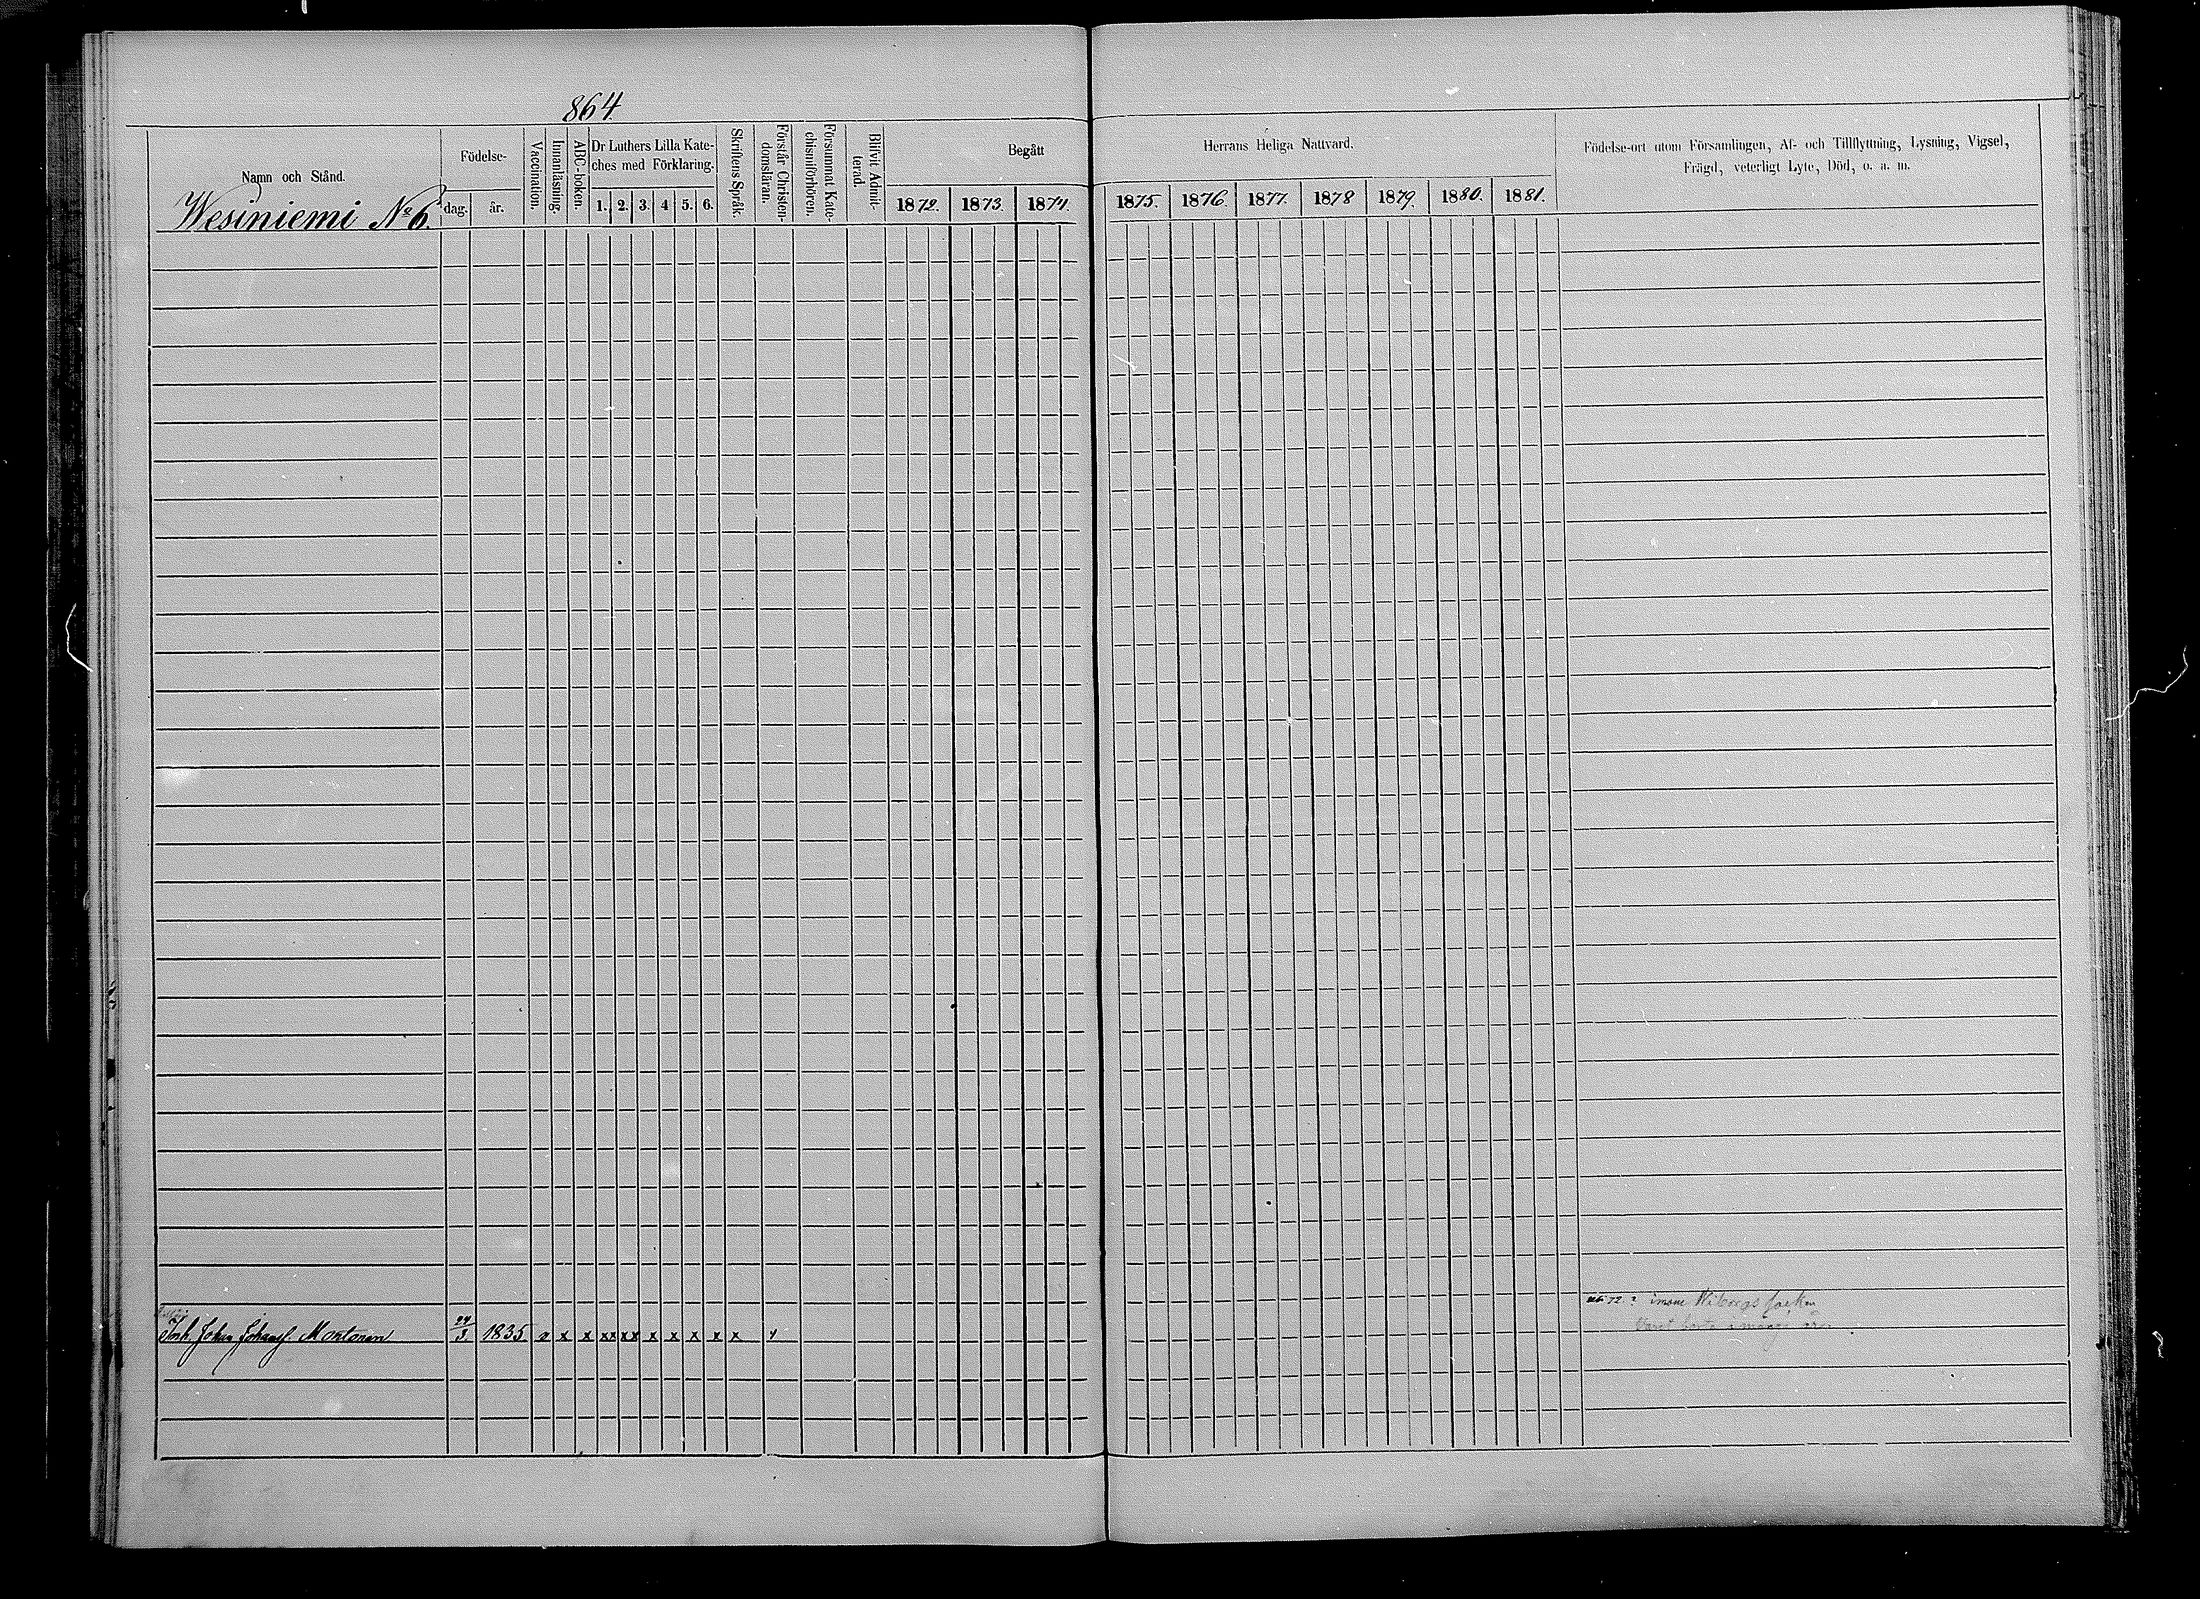 864.
Namn och Stånd.
Födelse-
dag. år.
Vaccination.
Innanläsning.
ABC-boken.
Dr Luthers Lilla Kate-
ches med Förklaring.
1. 2. 3. 4 5. 6.
Skriftens Språk.
Förstår Christen-
domsläran.
Försummat Kate-
chismiförhören.
Blifvit Admit-
terad.
Begått
1872. 1873. 1874.
Herrans Heliga Nattvard.
1875. 1876. 1877. 1878 1879. 1880. 1881.
Födelse-ort utom Församlingen, Af- och Tillflyttning, Lysning, Vigsel,
Frägd, veterligt Lyte, Död, o. a. m.
Wesiniemi No 6.
Inh. Johan Johansf. Montonen 24/3. 1835 x x x xx xx x x x x x
72 Wiborgs